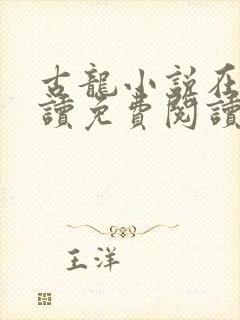 古龍小說在
讀免費閱讀
王洋